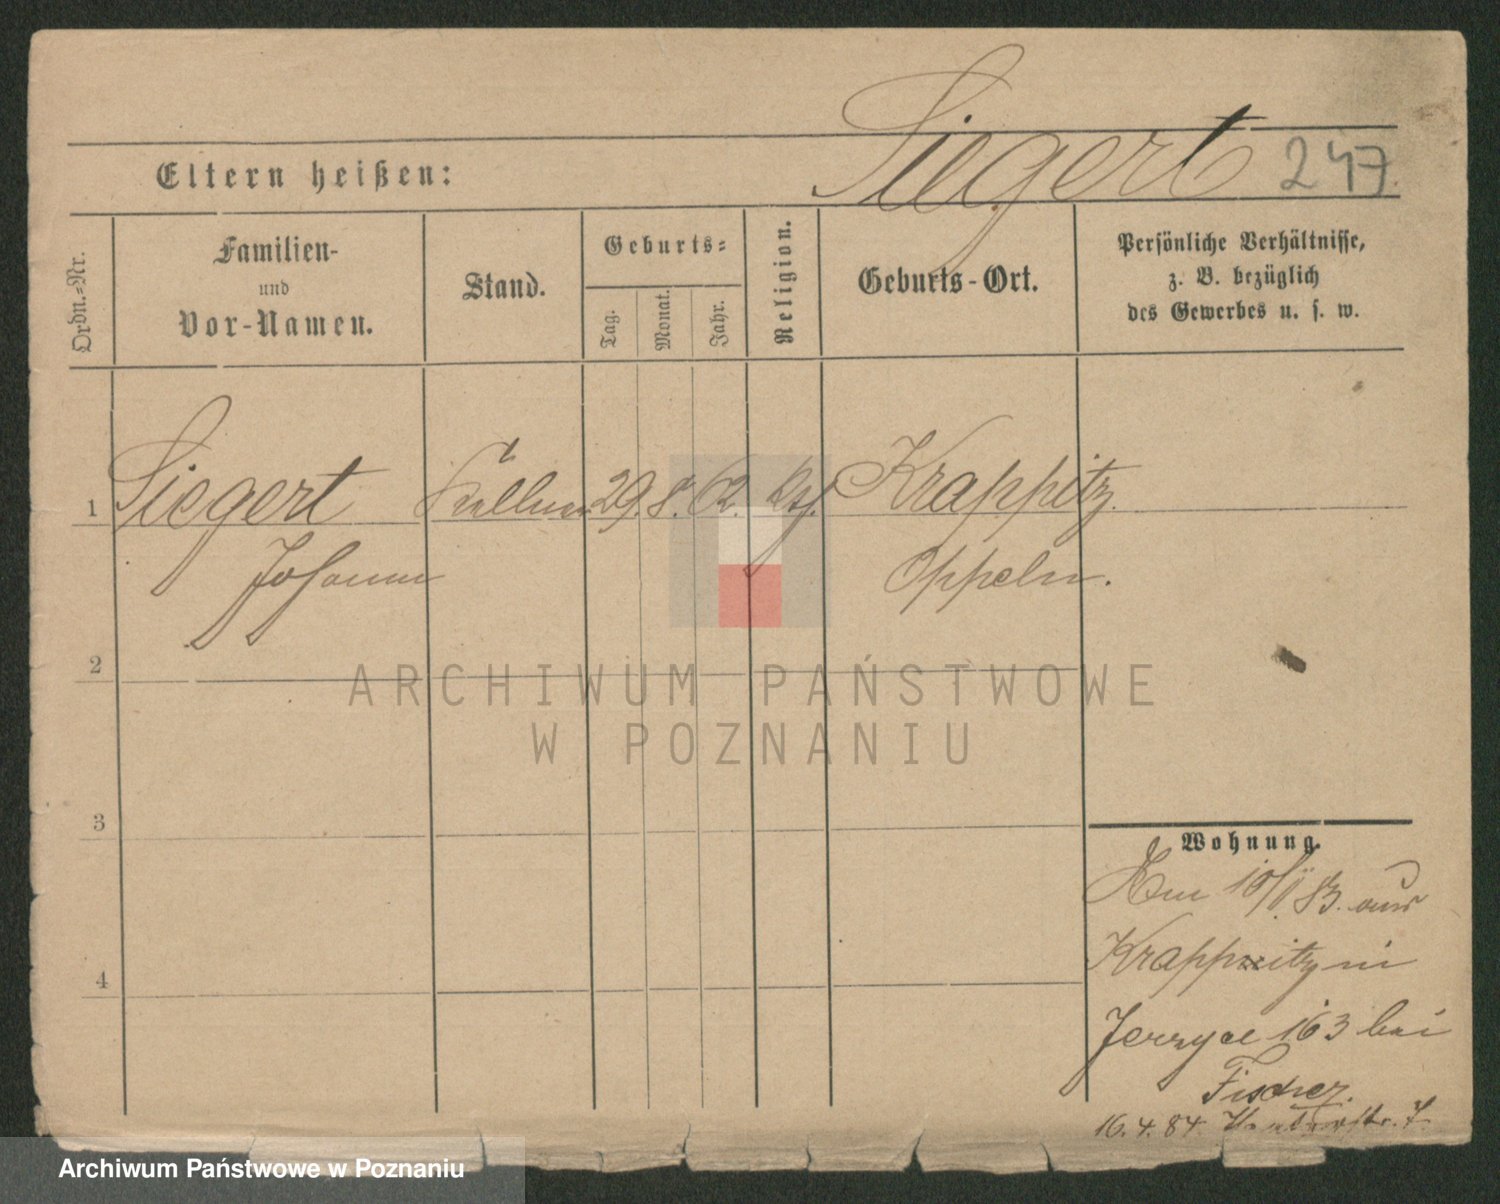 Siegert 247
Eltern heißen:
Ordn.-Nr.
Familien-
und
Vor-Namen.
Stand.
Geburts-
Tag.
Monat.
Jahr.
Religion.
Geburts-Ort.
Persönliche Verhältnisse,
z. B. bezüglich
des Gewerbes u. s. w.
1 Siegert Kellner 29. 8. 62. Krappitz.
Johann Oppeln.
2
3
4
Wohnung.
Am 10/1 83. aus
Krappitz in
Jerzyce 163 bei
Fischer.
16. 4. 84.
ARCHIWUM PAŃSTWOWE
W POZNANIU
Archiwum Państwowe w Poznaniu